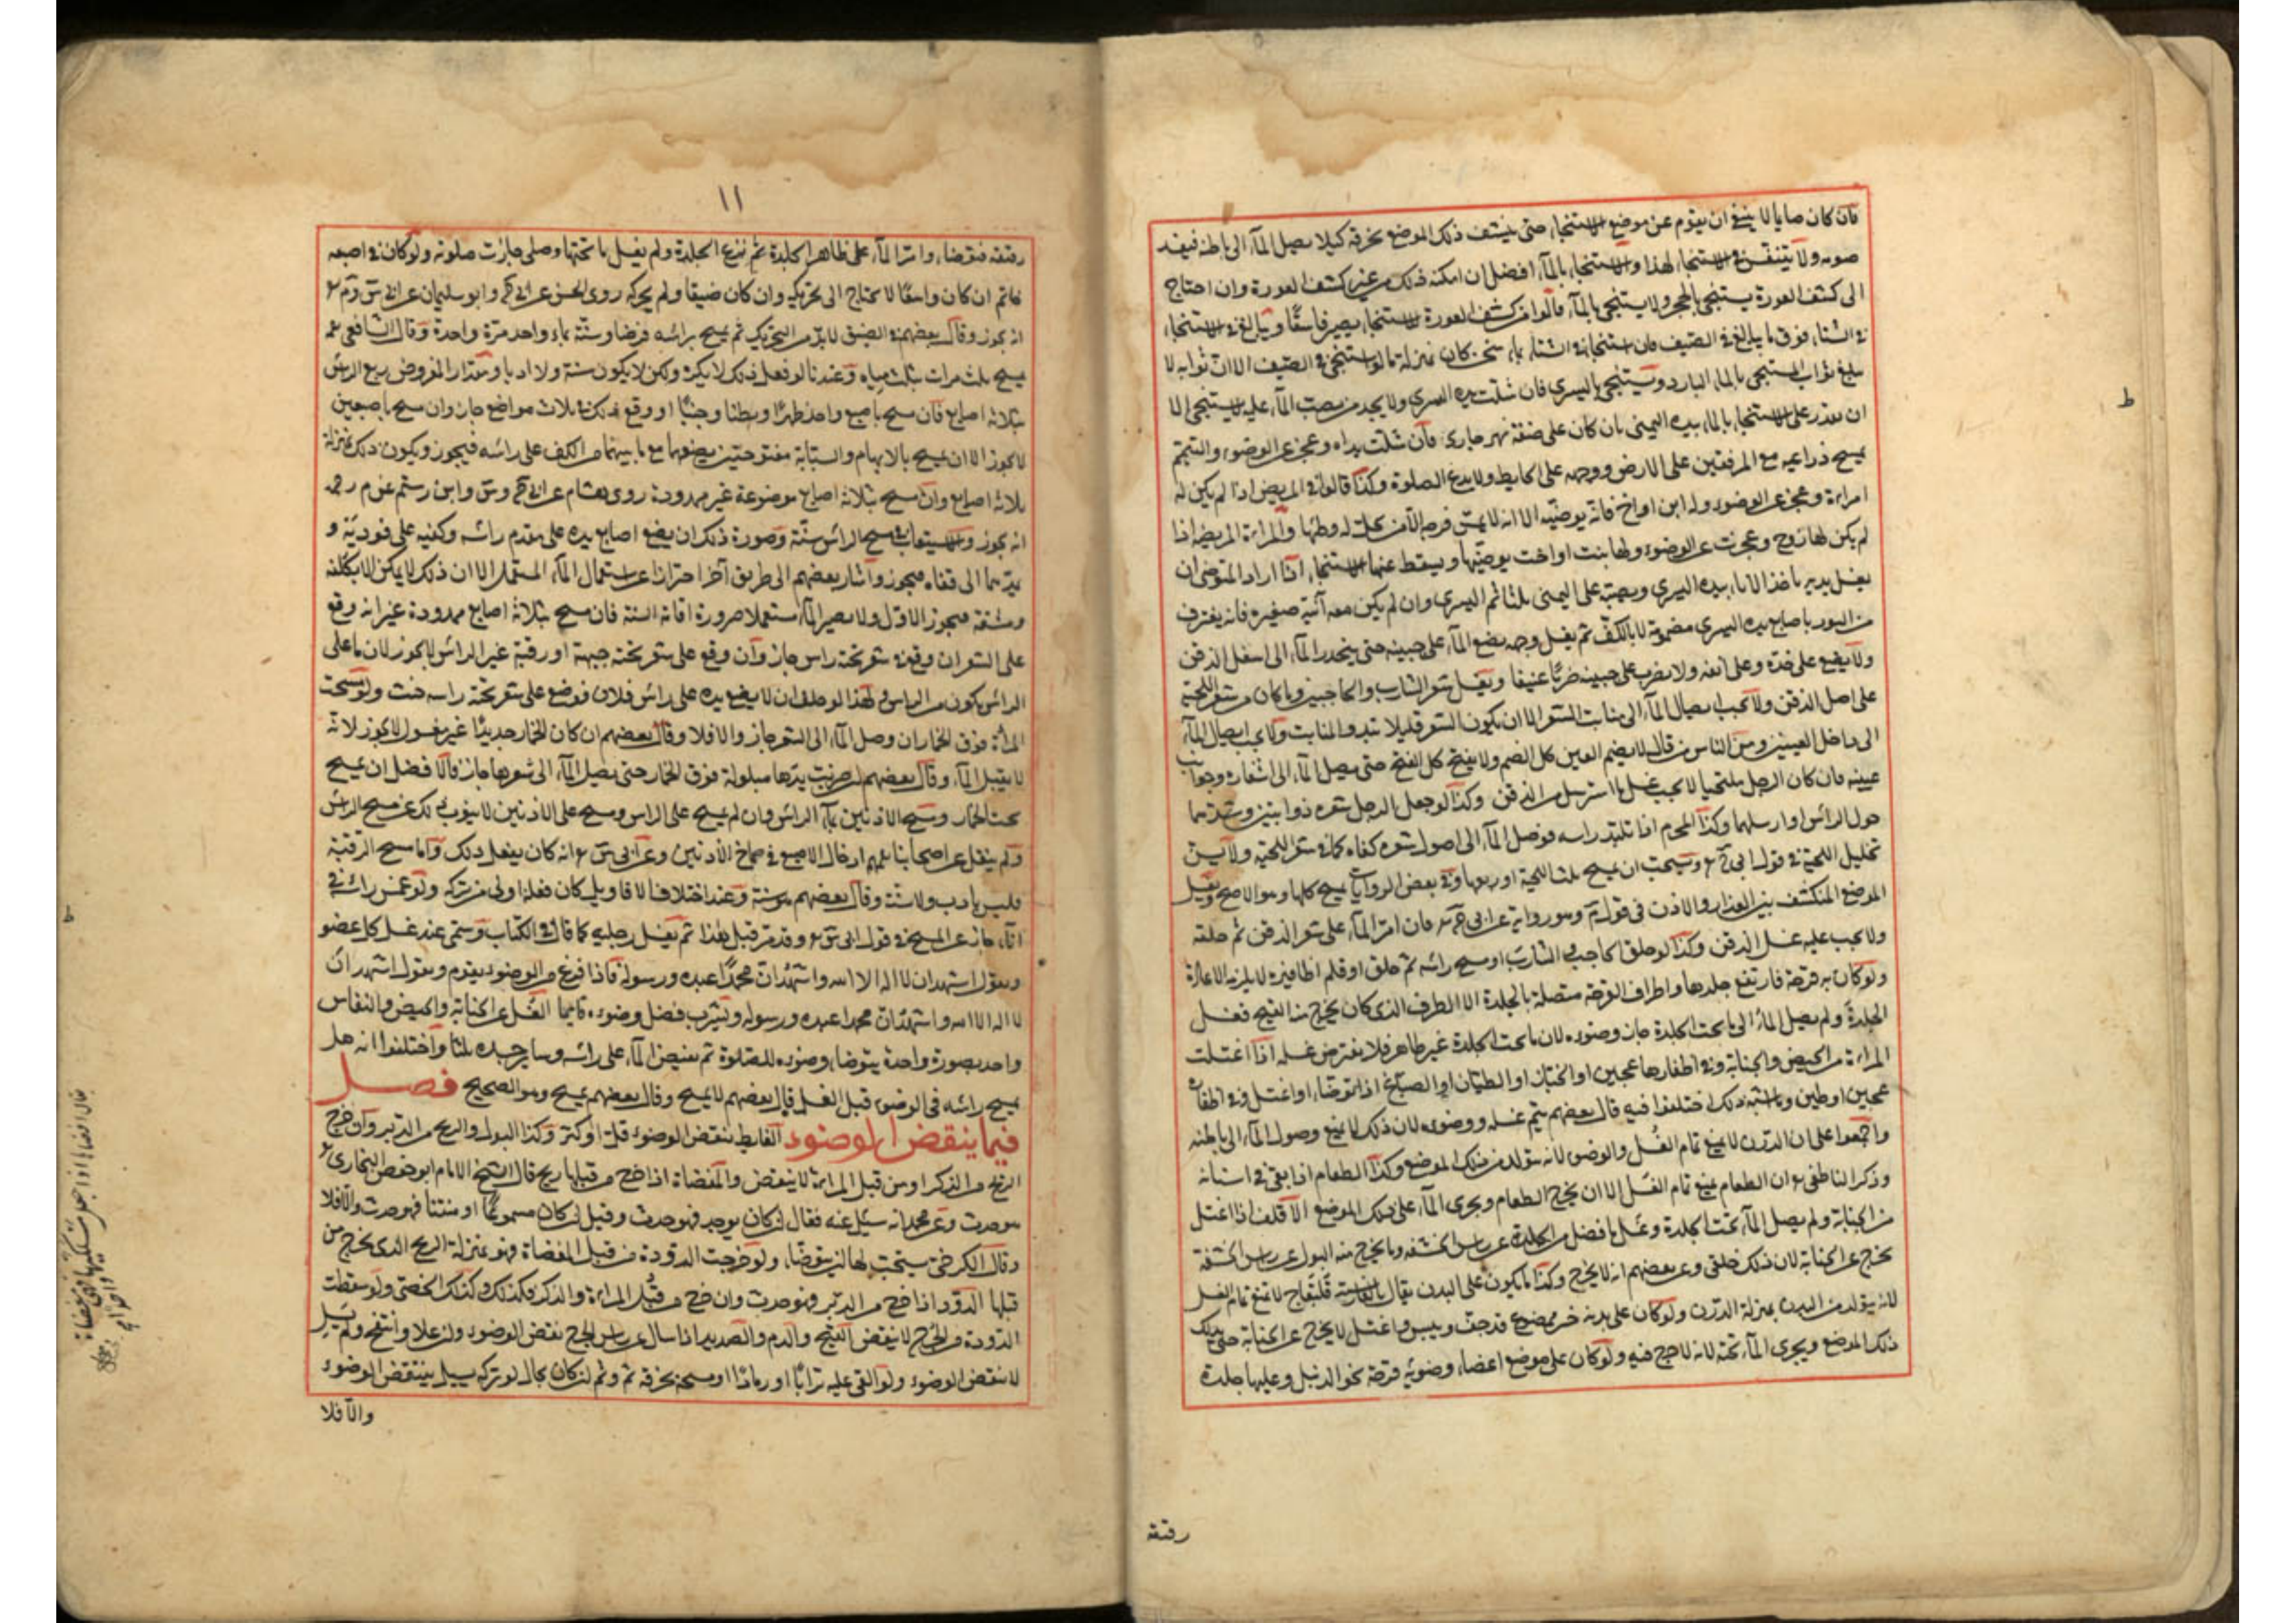 فان كان صايما لا ينبغي ان يقوم عن موضع الاستنجاء حتى ينشف ذلك الموضع بخرقة كيلا يصل الماء الى باطنه فيفسد
صومه ولا يتنفس في الاستنجاء لهذا والاستنجاء بالماء افضل ان امكنه ذلك من غير كشف العورة وان احتاج
الى كشف العورة يستنجي بالحجر ولا يستنجي بالماء قالوا من كشف العورة للاستنجاء يصير فاسقا ويبالغ في الاستنجاء
في الشتاء فوق ما يبالغ في الصيف فان استنجا في الشتاء بماء سخن كان بمنزلة ما لو استنجى في الصيف الا ان ثوابه لا
يبلغ ثواب المستنجي بالماء البارد ويستنجي باليسرى فان شلت يده اليسرى ولا يجد من يصب الماء عليه لا يستنجي الا
ان يقدر على الاستنجاء بالماء بيده اليمنى بان كان على ضفة نهر جاري فان شلت يداه وعجز عن الوضوء والتيمم
يمسح ذراعيه مع المرفقين على الارض ووجهه على الحايط ولا يدع الصلوة وكذا قالوا في المريض اذا لم يكن له
امراءة وعجز عن الوضوء وله ابن او اخ فانه يوضيه الا انه لا يمس فرجه الا من يحل له وطئها والمراءة المريضة اذا
لم يكن لها زوج وعجزت عن الوضوء ولها بنت او اخت يوضيها ويسقط عنها الاستنجاء اذا اراد المتوضى ان
يغسل يديه ياخذ الاناء بيده اليسرى ويصب على اليمنى ثلثا ثم اليسرى وان لم يكن معه آنية صغيرة فانه يغترف
من التور باصابع يده اليسرى مضمومة لا بالكف ثم يغسل وجهه يضع الماء على جبينه حتى ينحدر الماء الى اسفل الذقن
ولا يضع على خده وعلى انفه ولا يضرب على جبينه ضربا عنيفا ويغسل شعر الشارب والحاجبين وما كان من شعر اللحية
على اصل الذقن ولا يجب ايصال الماء الى منابت الشعر الا ان يكون الشعر قليلا تبدو المنابت ولا يجب ايصال الماء
الى داخل العينين ومن الناس من قال لا يضم العين كل الضم ولا يفتح كل الفتح حتى يصل الماء الى اشفاره وجوانب
عينيه فان كان الرجل ملتحيا لا يجب غسل ما استرسل من الذقن وكذا لو جعل الرجل شعره ذوابتين وشدهما
حول الراس او ارسلهما وكذا المحرم اذا تلبد راسه فوصل الماء الى اصول شعره كفاه كما في شعر اللحية ولا يسن
تخليل اللحية في قول ابي ح ويستحب ان يمسح ثلث اللحية او ربعها وفي بعض الروايات يمسح كلها وهو الاصح ويغسل
الموضع المنكشف بين العذار والاذن في قول م وهو رواية عن ابي ح فان امر الماء على شعر الذقن ثم حلقه
ولا يجب عليه غسل الذقن وكذا لو حلق الحاجب والشارب او مسح راسه ثم حلق او قلم اظافيره لا يلزمه الاعادة
ولو كان به قرحة فارتفع جلدها واطراف القرحة متصلة بالجلدة الا الطرف الذي كان يخرج منه القيح فغسل
الجلدة ولم يصل الماء الى ما تحت الجلدة جاز وضوءه لان ما تحت الجلدة غير ظاهر فلا يفترض غسله اذا اغتسلت
المراءة من الحيض والجنابة وفي اظفارها عجين او الخباز او الطيان او الصباغ اذا توضأ او اغتسل وفي اظفاره
عجين او طين وما اشبه ذلك اختلفوا فيه قال بعضهم يتم غسله ووضوءه لان ذلك لا يمنع وصول الماء الى باطنه
واجمعوا على ان الدرن لا يمنع تمام الغسل والوضوء لانه يتولد من ذلك الموضع وكذا الطعام اذا بقي في اسنانه
وذكر الناطفي ان الطعام يمنع تمام الغسل الا ان يخرج الطعام ويجري الماء على ذلك الموضع الاقلف اذا اغتسل
من الجنابة ولم يصل الماء تحت الجلدة وغسل ما فضل من الجلدة عن راس الحشفة وما يخرج منه البول عن راس الحشفة
يخرج عن الجنابة لان ذلك خلقي وعن بعضهم انه لا يخرج وكذا ما يكون على البدن يقال بالفارسية لا يمنع تمام الغسل
لانه يتولد من البدن بمنزلة الدرن ولو كان على بدنه خبز ممضوغ قد جف ويبس واغتسل لا يخرج عن الجنابة حتى يدلك
ذلك الموضع ويجري الماء تحته لانه لا حرج فيه ولو كان على موضع اعضاء وضوئه قرحة نحو الدمل وعليها جلدة
رقيقة
١١
رقيقة فتوضاء وامر الماء على ظاهر الجلدة ثم نزع الجلدة ولم يغسل ما تحتها وصلى جازت صلوته ولو كان في اصبعه
خاتم ان كان واسعا لا يحتاج الى تحريكه وان كان ضيقا ولم يحركه روى الحسن عن ابي ح وابو سليمان عن ابي س وم
انه يجوز وقال بعضهم في الضيق لا بد من التحريك ثم يمسح براسه فرضا وسنة بماء واحد مرة واحدة وقال الشافعي
يمسح ثلث مرات بثلث مياه وعندنا لو فعل ذلك لا يكره ولكن لا يكون سنة ولا ادبا ومقدار المفروض ربع الراس
بثلاثة اصابع فان مسح باصبع واحد ظهرا وبطنا وجنبا او وقع ذلك في ثلاث مواضع جاز وان مسح باصبعين
لا يجوز الا ان يمسح بالابهام والسبابة مفتوحتين يضعهما مع ما بينهما من الكف على راسه فيجوز ويكون ذلك بمنزلة
ثلاثة اصابع وان مسح بثلاثة اصابع موضوعة غير ممدودة روى هشام عن ابي ح وس وابن رستم عن م رحمه
انه يجوز والاستيعاب في مسح الراس سنة وصورة ذلك ان يضع اصابع يده على مقدم راسه وكفيه على فوديه و
يمدهما الى قفاه فيجوز واشار بعضهم الى طريق آخر احترازا عن استعمال الماء المستعمل الا ان ذلك لا يمكن الا بكلفة
ومشقة فيجوز الاول ولا يصير الماء مستعملا ضرورة اقامة السنة فان مسح بثلاثة اصابع ممدودة غير انه وقع
على الشعر ان وقع في شعر تحته راس جاز وان وقع على شعر تحته جبهة او رقبة غير الراس لا يجوز لان ما على
الراس يكون من الراس ولهذا لو حلف ان لا يضع يده على راس فلان فوضع على شعر تحته راسه حنث ولو مسحت
المرأة فوق الخمار ان وصل الماء الى الشعر جاز والا فلا وقال بعضهم ان كان الخمار جديدا غير مغسول لا يجوز لانه
لا يقبل الماء وقال بعضهم ان ضربت يدها مبلولة فوق الخمار حتى يصل الماء الى شعرها جاز والافضل ان يمسح
تحت الخمار ويمسح الاذنين بماء الراس وان لم يمسح على الراس ومسح على الاذنين لا ينوب ذلك عن مسح الراس
ولم ينقل عن اصحابنا ادخال الاصبع في صماخ الأذنين وعن ابي س انه كان يفعل ذلك واما مسح الرقبة
فليس بادب ولا سنة وقال بعضهم هو سنة وعند اختلاف الاقاويل كان فعله اولى من تركه ولو غمس راسه في
اناء جاز عن المسح في قول ابي س وقد مر قبل هذا ثم يغسل رجليه كما قال في الكتاب ويسمي عند غسل كل عضو
ويقول اشهد ان لا اله الا الله واشهد ان محمدا عبده ورسوله فاذا فرغ من الوضوء يقوم ويقول اشهد ان
لا اله الا الله واشهد ان محمدا عبده ورسوله ويشرب فضل وضوءه قايما الغسل عن الجنابة والحيض والنفاس
واحد بصورة واحدة يتوضا وضوءه للصلوة ثم يفيض الماء على راسه وساير جسده ثلثا واختلفوا انه هل
يمسح راسه في الوضوء قبل الغسل قال بعضهم لا يمسح وقال بعضهم يمسح وهو الصحيح فصل
فيما ينقض الوضوء الغايط ينقض الوضوء قل او كثر وكذا البول والريح من الدبر وان خرج
الريح من الذكر او من قبل المراءة لا ينقض والمفضاة اذا خرج من قبلها ريح قال الشيخ الامام ابو حفص البخاري
هو حدث وعن محمد انه سئل عنه فقال ان كان يوجد فهو حدث وقيل ان كان مسموعا او منتنا فهو حدث والا فلا
وقال الكرخي يستحب لها ان يتوضا ولو خرجت الدودة من قبل المفضاة فهو بمنزلة الريح الذي يخرج من
قبلها الدود اذا خرج من الدبر فهو حدث وان خرج من قبل المراءة والذكر فكذلك وكذلك الحصى ولو سقطت
الدودة من الجرح لا ينقض القيح والدم والصديد اذا سال عن راس الجرح نقض الوضوء وان علا وانتفخ ولم يسل
لا ينقض الوضوء ولو القى عليه ترابا او رمادا او مسحه بخرقة ثم وثم ان كان بحال لو تركه يسيل ينتقض الوضوء
والا فلا